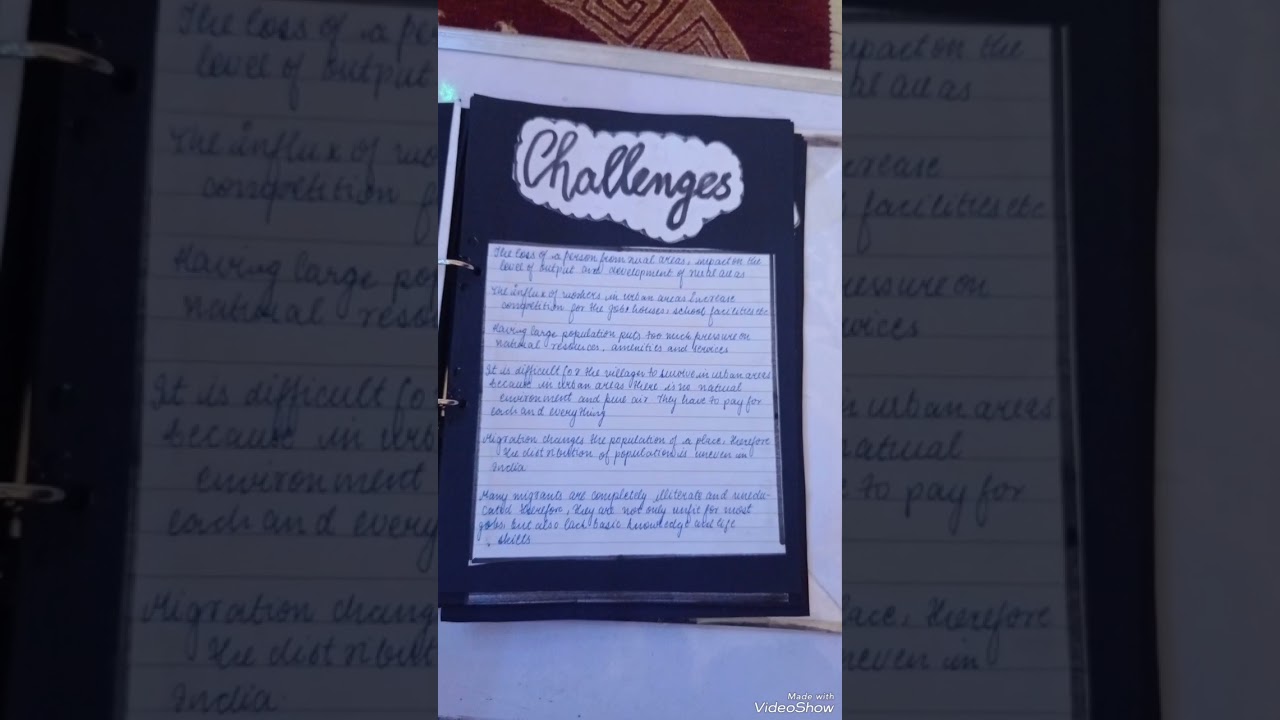 Challenges
The loss of a person from rural areas, impact on the
level of output and development of rural areas
The influx of workers in urban areas increase
competition for the job, houses, school facilities etc
Having large population puts too much pressure on
natural resources, amenities and services
It is difficult for the villager to survive in urban areas
because in urban areas there is no natural
environment and pure air They have to pay for
each and everything
Migration changes the population of a place, therefore
the distribution of population is uneven in
India
Many migrants are completely illiterate and unedu-
cated therefore, they are not only unfit for most
jobs, but also lack basic knowledge and life
skills
Made with
VideoShow